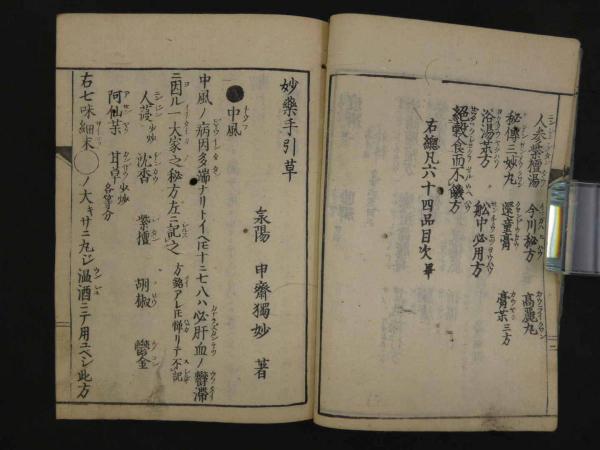 人参紫檀湯　今川秘方　高麗丸
秘傳三妙丸　還童膏　膏藥三方
浴湯藥方　舩中必用方
絕穀食而不饑方
右總凡六十四品目次畢
妙藥手引草
泉陽　申齋獨妙　著
中風
中風ノ病因多端ナリトイヘ𪜈十ニ七八ハ必肝血ノ欝滞
ニ因ル一大家之秘方左ニ記之　方銘アレ𪜈憚リテ不記
人葠 少炒　沈香　紫檀　胡椒　欝金
阿仙葉　甘草 少炒 各等分
右七味細末〇ノ大キサニ丸シ温酒ニテ用ユヘシ此方